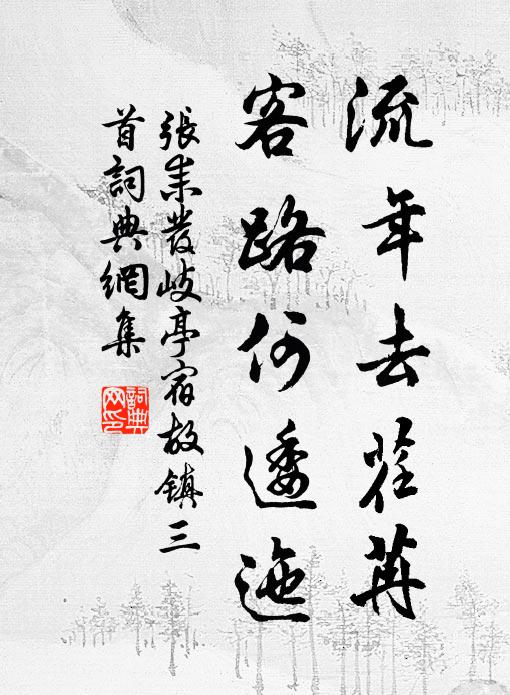 流年去荏苒
客路何逶迤
張耒發岐亭宿故鎮三
首詞典網集
詞典
网印